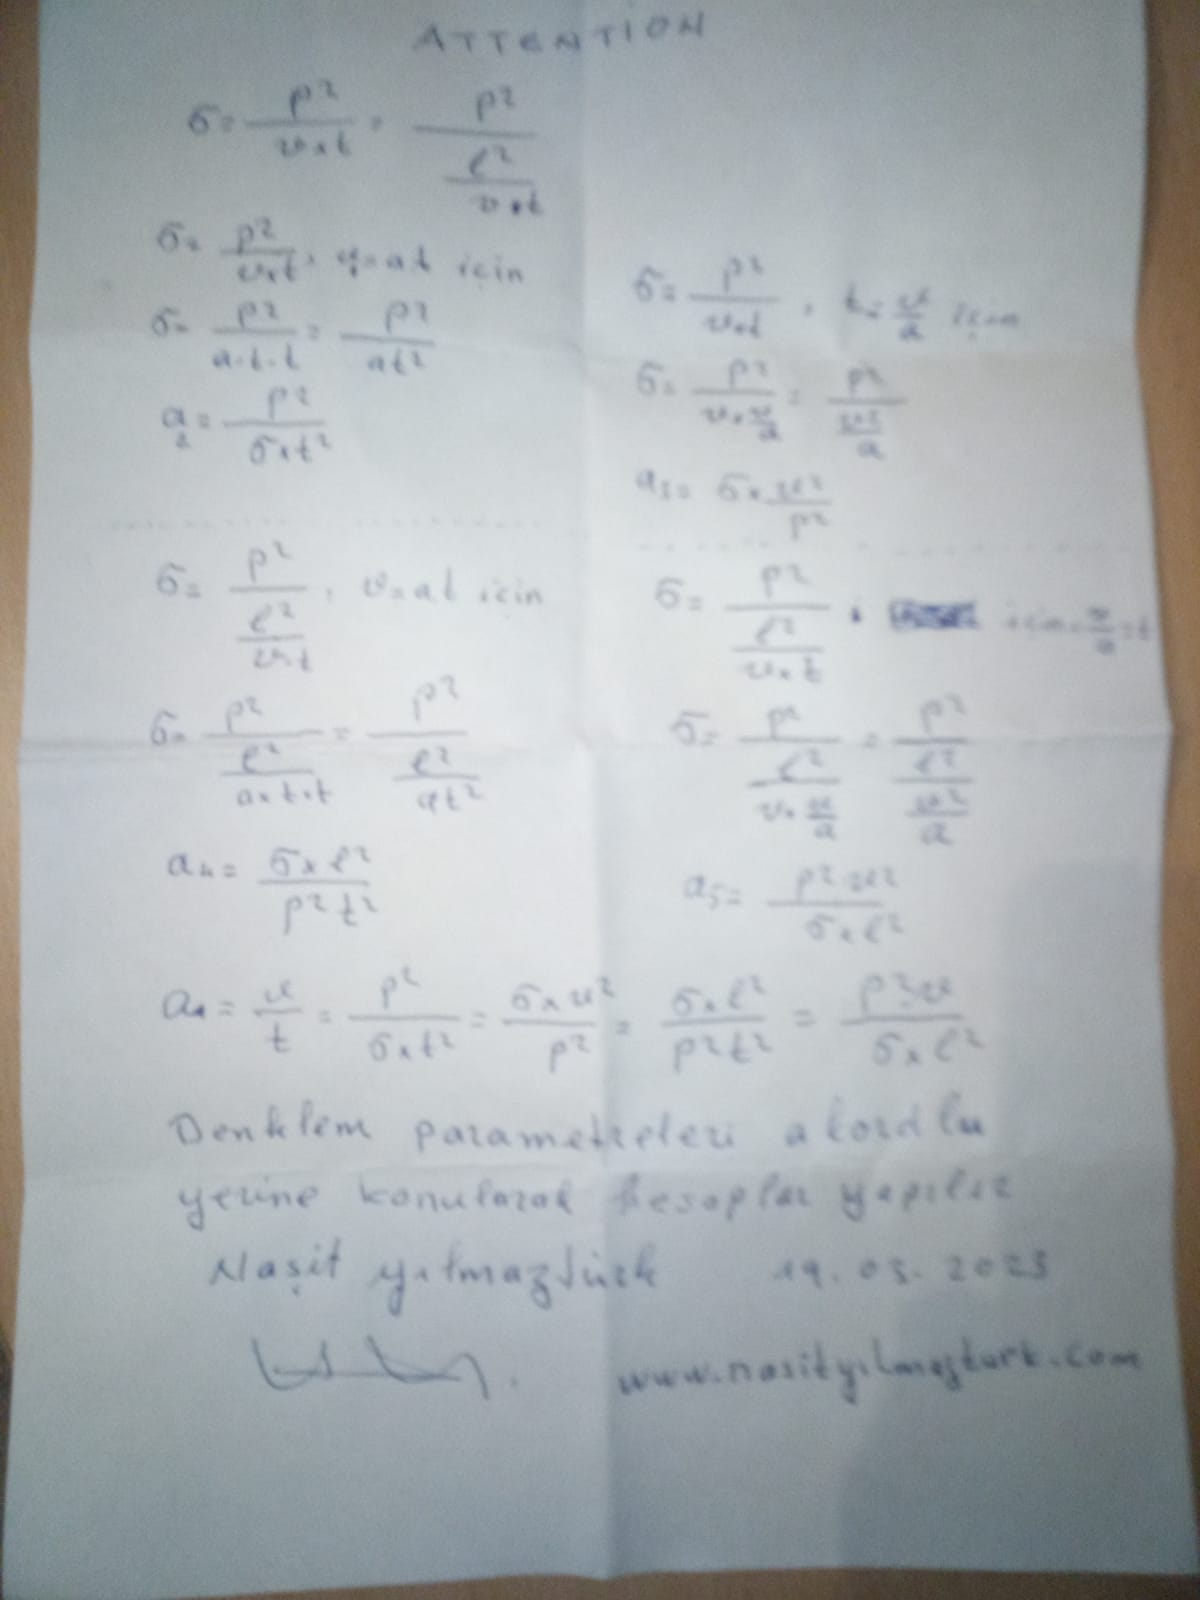 ATTENTION
σ = p²/(v×t) = p²/(l²/(v×t))
σ = p²/(v×t), v=at için
σ = p²/(a·t·t) = p²/(at²)
a₂ = p²/(σ×t²)
σ = p²/(v×t), t = v/a için
σ = p²/(v×v/a) = p²/(v²/a)
a₃ = σ×v²/p²
σ = p²/(l²/(v×t)), v=at için
σ = p²/(l²/(a×t×t)) = p²/(l²/(at²))
a₄ = σ×l²/(p²t²)
σ = p²/(l²/(v×t)), için v/a = t
σ = p²/(l²/(v×v/a)) = p²/(l²/(v²/a))
a₅ = p²v²/(σ×l²)
a₁ = v/t = p²/(σ×t²) = σ×v²/p² = σ×l²/(p²t²) = p²·v/(σ×l²)
Denklem parametreleri
yerine konularak hesaplar yapılır
Naşit yılmaztürk 19.03.2023